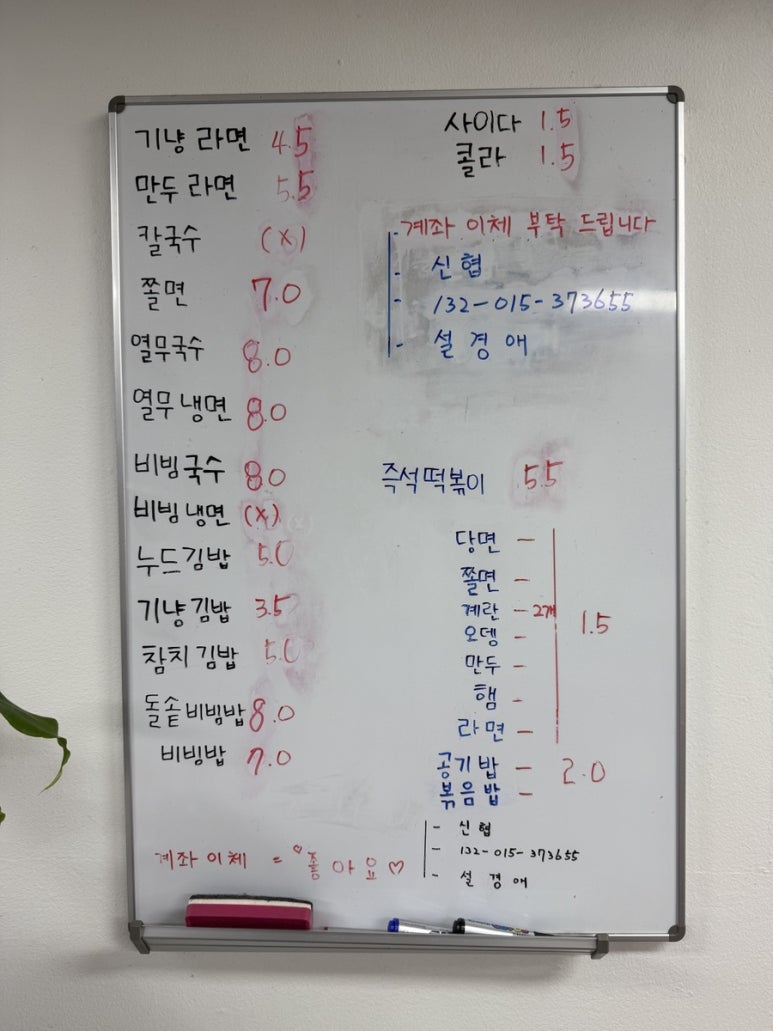 기냥 라면 4.5
만두 라면 5.5
칼국수 (x)
쫄면 7.0
열무국수 8.0
열무 냉면 8.0
비빔국수 8.0
비빔 냉면 (x)
누드김밥 5.0
기냥김밥 3.5
참치 김밥 5.0
돌솥 비빔밥 8.0
비빔밥 7.0
사이다 1.5
콜라 1.5
- 계좌 이체 부탁 드립니다
- 신협
- 132-015-373655
- 설경애
즉석떡볶이 5.5
당면 -
쫄면 -
계란 - 2개
오뎅 -
만두 -
햄 -
라면 -
1.5
공기밥 -
볶음밥 -
2.0
계좌 이체 = ♡좋아요♡
- 신협
- 132-015-373655
- 설경애